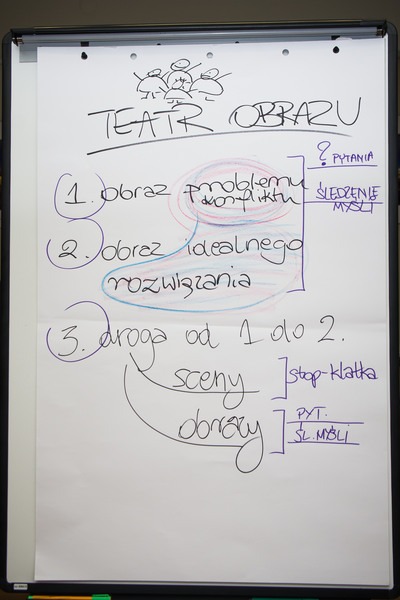 TEATR OBRAZU
? PYTANIA
1. obraz problemu
konfliktu
ŚLEDZENIE
MYŚLI
2. obraz idealnego
rozwiązania
3. droga od 1 do 2.
sceny
stop-klatka
obrazy
PYT.
ŚL. MYŚLI